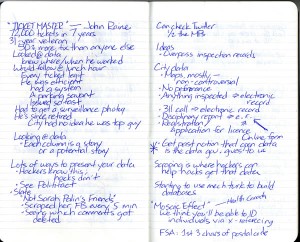 "TICKET MASTER" – John Raine
72,000 tickets in 7 years
31 year veteran
50% more than anyone else
Looked @ data
knew where/when he worked
Would follow @ lunch hour
Every ticket last
He was efficient
had a system
A parking savant
issued so fast
Had to get a surveillance photo
He's since retired
City had no idea he was top guy
Looking @ data
- Each column is a story
or a potential story
Lots of ways to present your data
- Hackers know this;
hacks don't
- See Politifact
- Slate
"Not Sarah Palin's Friends"
- Scraped her FB every 5 min
- Saying which comments got
deleted
Can check Twitter
½ the MPs
Ideas
- Overpass inspection records
City data
- Maps, mostly –
non-controversial
- No performance
- Anything inspected = electronic
record
- 311 call = electronic record
- Disciplinary report = e.r.
- Registration/
Application for licence
Online form
* Get past notion that open data
is the data gov. wants to use
Scraping is where hackers can
help hacks get that data
Starting to use mech turk to build
databases
"Mosaic Effect" – Health Canada
We think you'll be able to ID
individuals via x-referencing
FSA: 1st 3 chars of postal code